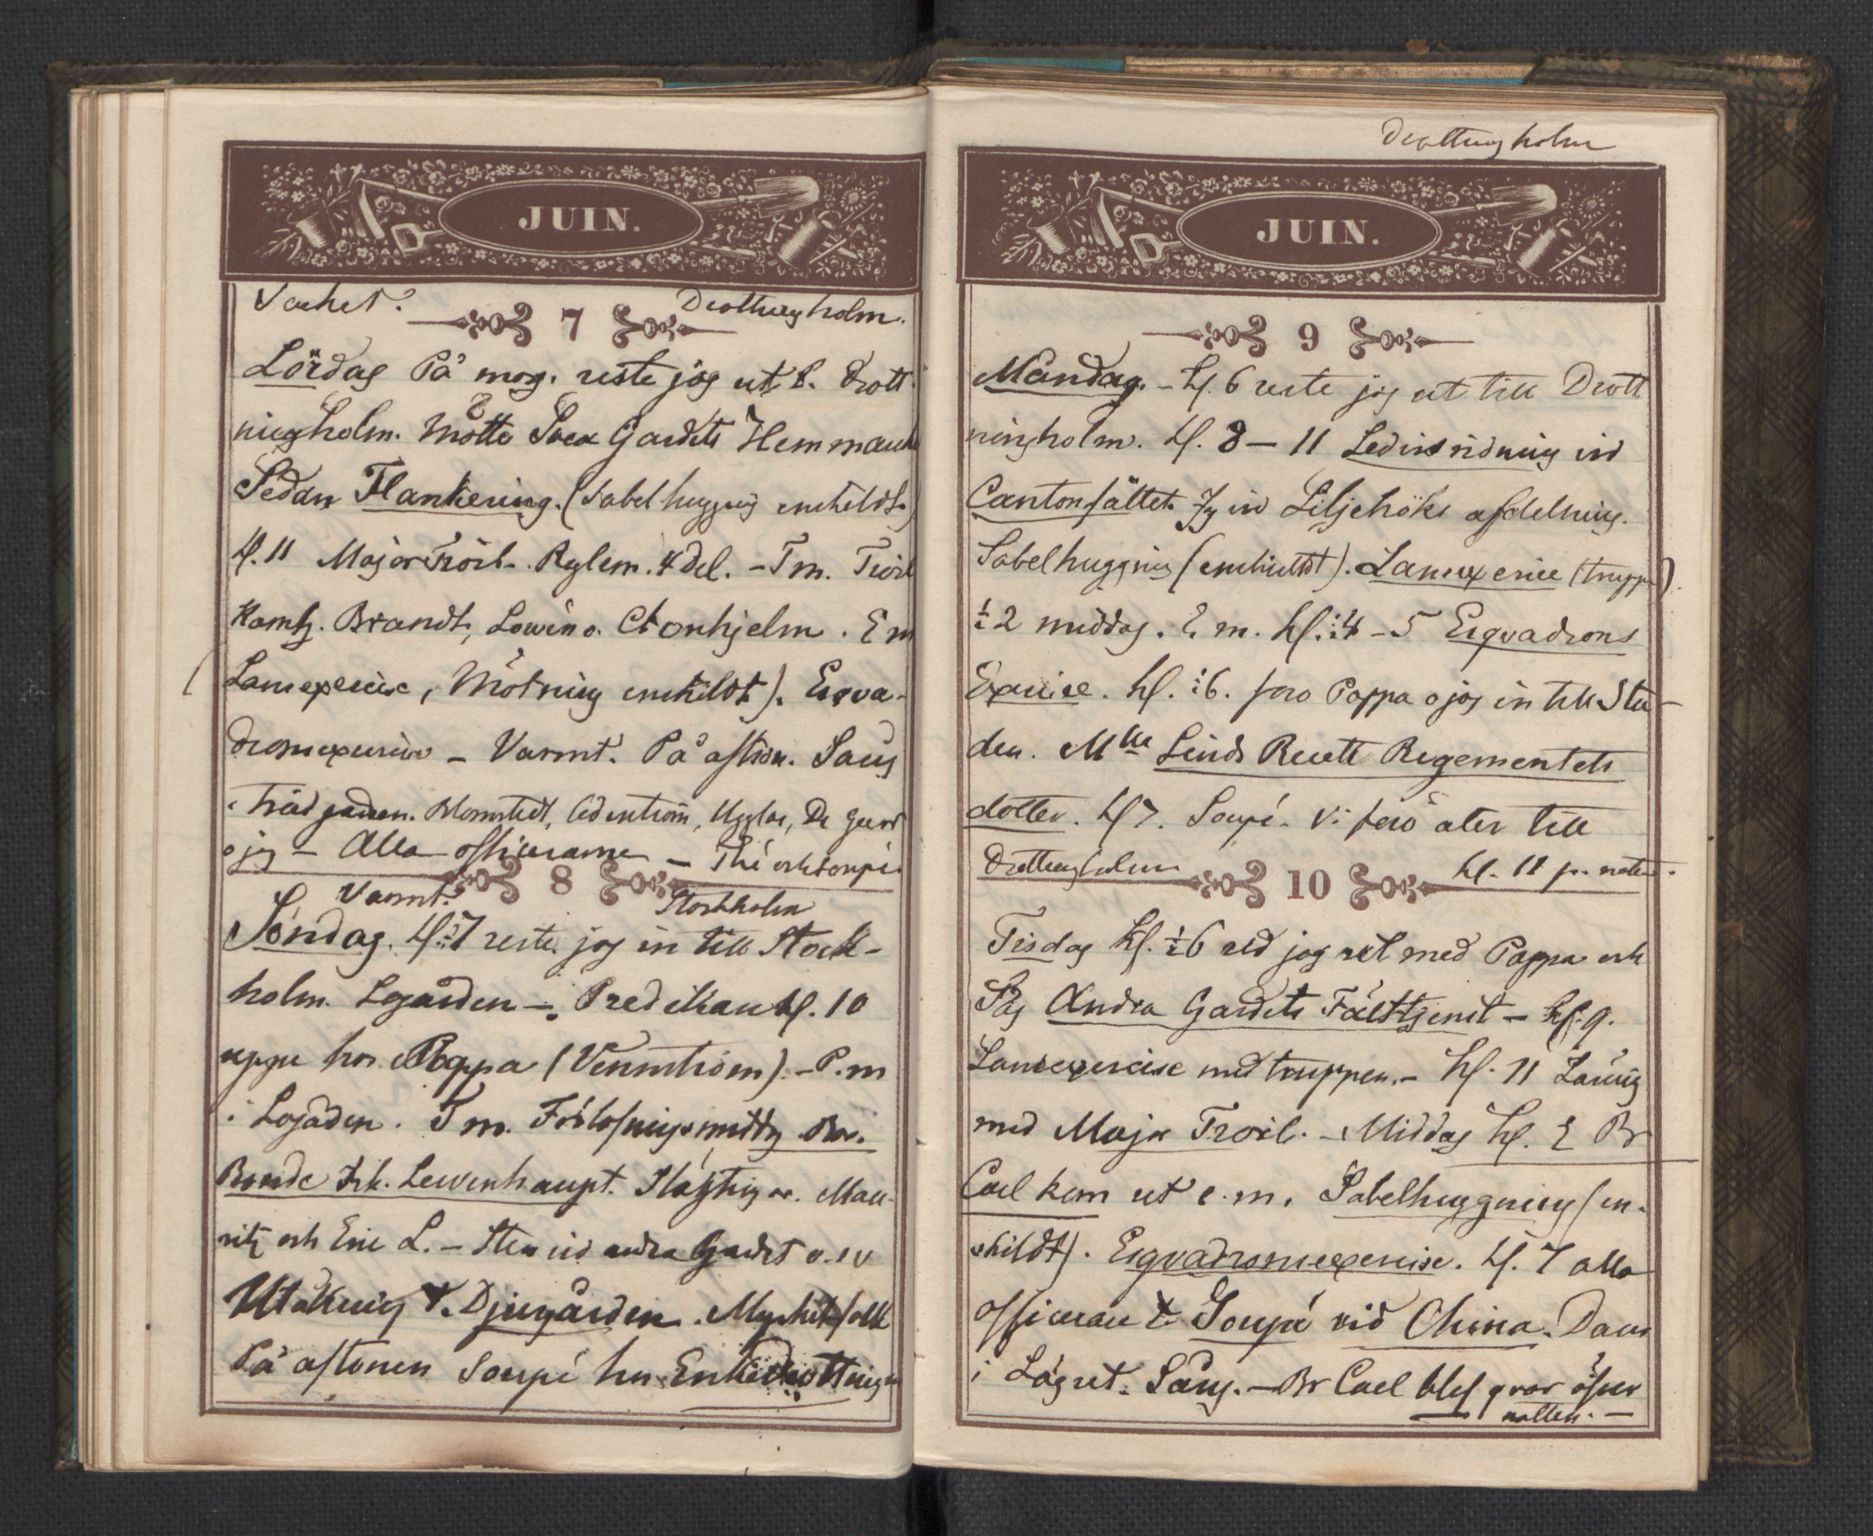 JUIN.
Vackert. Drottningholm.
7
Lördag På morg. reste jag ut t. Drott
ningholm. Mötte Svea Gardets Hemmarch
Sedan Flankering. (Sabelhuggnig enskildt)
kl. 11 Major Troil. Reglem. 4 del. – T m. Troil
Kamh. Brandt, Lovén o. Cronhjelm. E m
Lansexercise, Mötning enskildt). Esqva-
dronsexercise – Varmt. På afton. Sång
i trädgården. Blomstedt, Cederström, Ugglas, De Geer
o jag – Alla officerarne – Thé och soupé.
8
Varmt. Stockholm
Söndag. Kl. ½7 reste jag in till Stock-
holm. Logården – Predikan kl. 10
uppe hos Pappa (Vennström). – P. m
i Logården. T m. Förlofningsmiddg
Bonde Frk. Lewenhaupt. Mau-
ritz och Eric L. – Sten vid andra Gardet
Utåkning t. Djurgården. Myckett folk
På aftonen soupé hos Enkedrottningen
Drottningholm
JUIN.
9
Måndag. – Kl. 6 reste jag ut till Drott
ningholm. Kl. 8 – 11 Ledinsridning vid
Cantonfältet. Jg vid Liljehöks afdelning.
Sabelhuggning (enskildt). Lansexercice (trupp).
½2 middag. E. m. kl. ½4 – 5 Esqvadrons
Exercise. Kl. ½6. foro Pappa o jag in till Sta-
den. Mlle Linds Recett Regementets
dotter. Kl 7. Soupé. Vi foro åter till
Drottningholm kl. 11 p. natten.
10
Tisdag Kl. ½6 red jag ut med Pappa och
Såg Andra Gardets Fälttjenst – kl. 9.
Lansexercise med truppen. – Kl. 11 Läsnig
med Major Troil. – Middag kl. 2 Br
Carl kom ut e. m. Sabelhuggning (en-
skildt). Esqvadronsexercise. Kl. 7 alla
officerare t. Soupé vid China. Dans
i Lägret. Sång. – Br Carl blef qvar öfver
natten. –